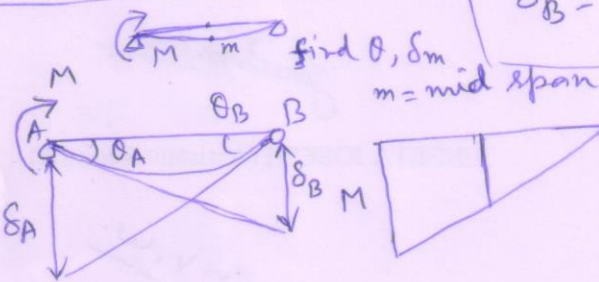 θB -
M m find θ, δm
m = mid span
M
A θA θB B
δA δB M